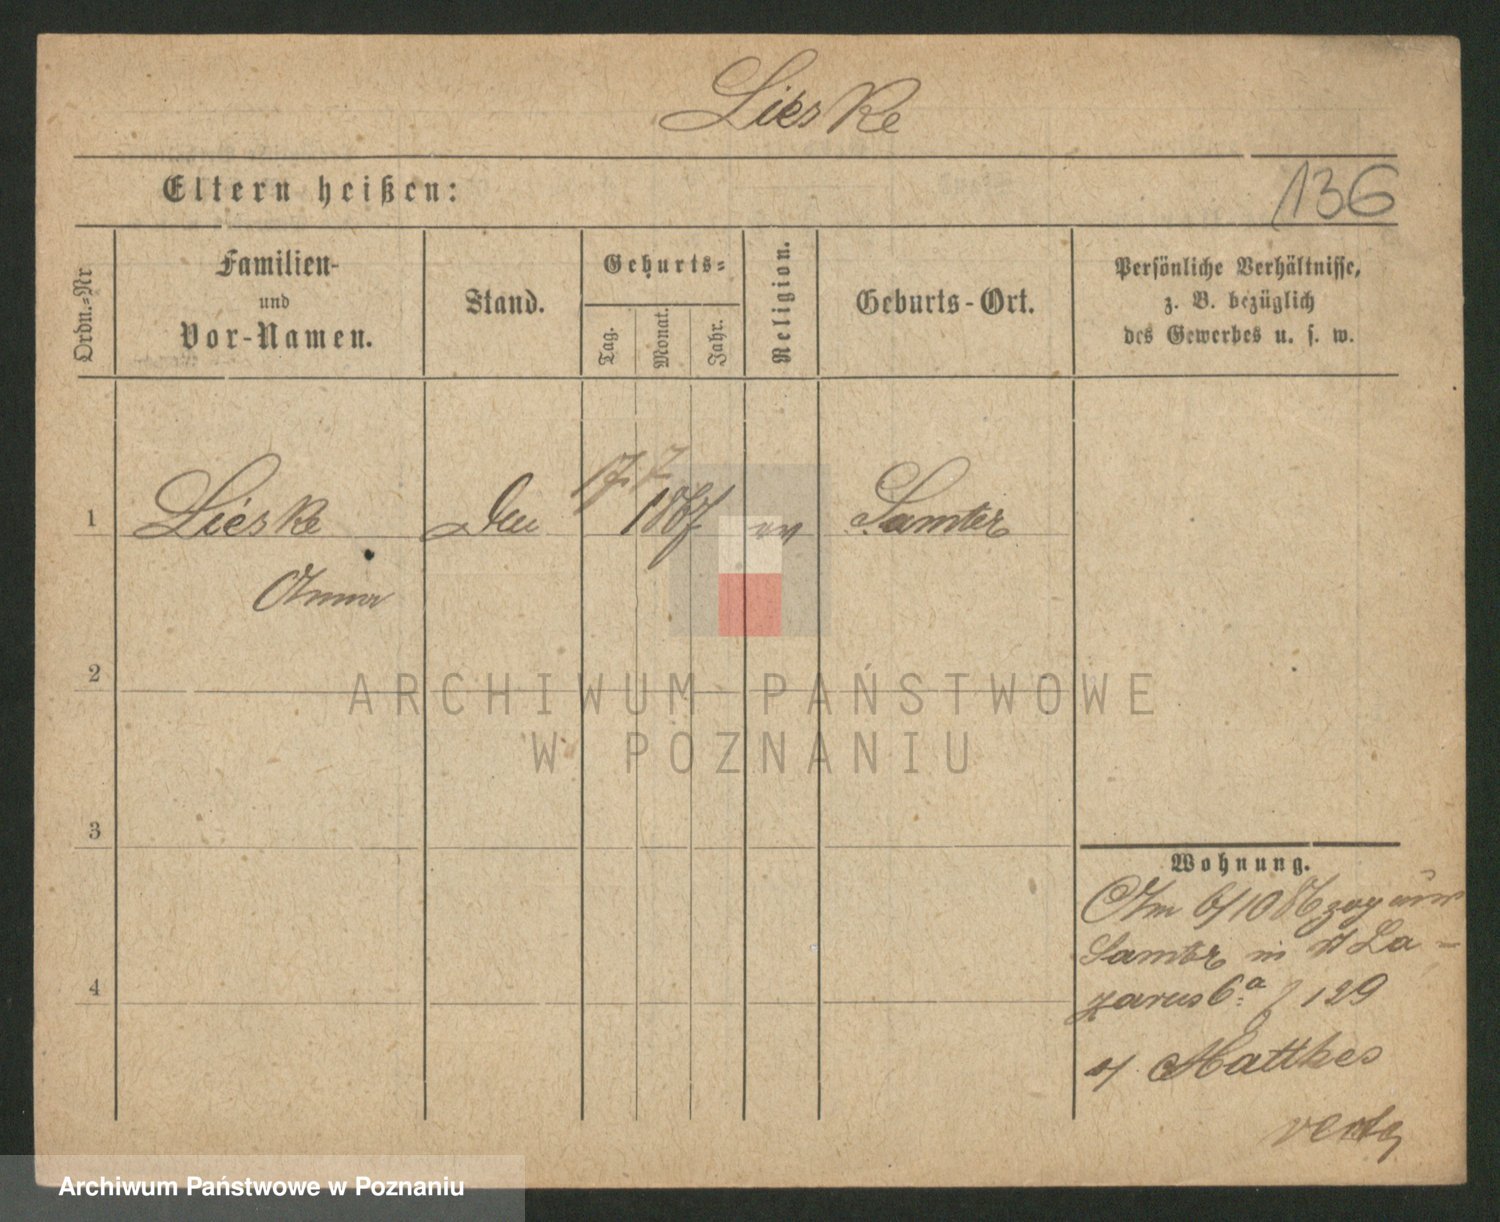 Lieske
Eltern heißen:
136
Ordn.-Nr
Familien-
und
Vor-Namen.
Stand.
Geburts-
Tag.
Monat.
Jahr.
Religion.
Geburts-Ort.
Persönliche Verhältnisse,
z. B. bezüglich
des Gewerbes u. s. w.
1
Lieske
17. 7
1867
ev
Samter
Anna
2
3
4
Wohnung.
Am 6/10 86 zog aus
Samter in St La-
zarus 6a 129
Matthes
ARCHIWUM PAŃSTWOWE
W POZNANIU
Archiwum Państwowe w Poznaniu